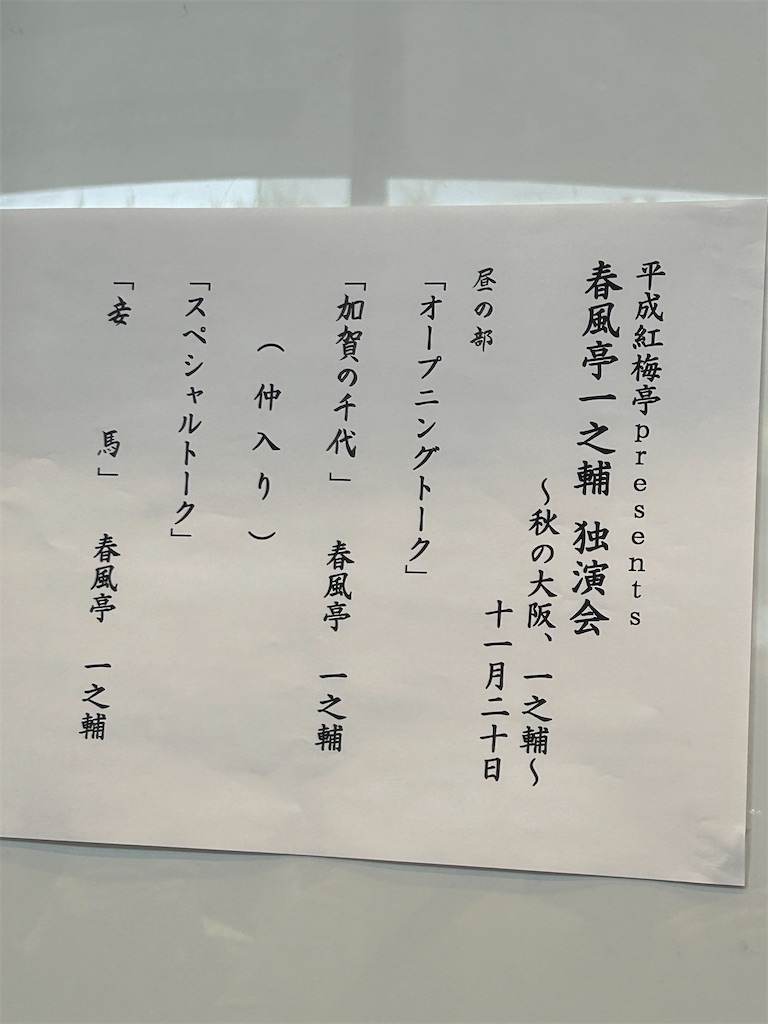 平成紅梅亭presents
春風亭一之輔 独演会
～秋の大阪、一之輔～
十一月二十日
昼の部
「オープニングトーク」
「加賀の千代」 春風亭 一之輔
（仲入り）
「スペシャルトーク」
「妾 馬」 春風亭 一之輔